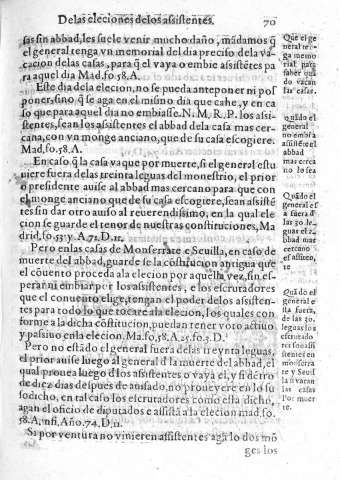 De las eleciones delos assistentes. 70
sas sin abbad, les suele venir mucho daño, mãdamos q̃
el general tenga vn memorial del dia preciso dela va-
cacion delas casas, para q̃ el vaya o embie assistẽtes pa
ra aquel dia Mad. fo. 58. A.
Este dia dela elecion, no se pueda anteponer ni pos
poner, sino q̃ se aga en el mismo dia que cahe, y en ca
so que para aquel dia no embiasse. N. M. R. P. los assi-
stentes, sean los assistentes el abbad dela casa mas cer-
cana, con vn monge anciano, que de su casa escogiere.
Mad. fo. 58. A.
En caso q̃ la casa vaque por muerte, si el general estu
uiere fuera delas treinta leguas del monestrio, el prior
o presidente auise al abbad mas cercano para que con
el monge anciano que de su casa escogiere, sean assistẽ
tes sin dar otro auiso al reuerendissimo, en la qual ele
cion se guarde el tenor de nuestras constituciones, Ma
drid, fo. 53. y A. 71. D. 11.
Pero enlas casas de Monserrate e Seuilla, en caso de
muerte del abbad, guarde se la cõstitucion antigua que
el cõuento proceda ala elecion por aquella vez, sin es-
perar ni embiar por los assistentes, e los escrutadores
que el conuento elige, tengan el poder delos assisten-
tes para todo lo que tocare ala elecion, los quales con
forme a la dicha cõstitucion, puedan tener voto actiuo
y passiuo enla elecion. Ma. fo, 58. A. 25. fo. 3. D.
Pero no estãdo el general fuera delas treynta leguas,
el prior auise luego al general d̃ la muerte del abbad, el
qual prouea luego d̃ los assistentes o vaya el, y si dẽtro
de diez dias despues de auisado, no proueyere en lo su
sodicho, en tal caso los escrutadores como ella dicho,
agan el oficio de diputados e assistã a la elecion mad. fo.
58. A. nfi, Año. 74. D. 11.
Si por ventura no vinieren assistentes aga lo dos mõ
ges los
Que el ge
neral te-
ga memo
rial para
saber quã
do vacan
las casas.
quãdo el
general
no embia
assistẽte el
abbad
mas cerca
no lo sea
Quãdo el
general es
a fuera d̃
las 30. le
guas el a-
bbad mar
cercano
es assiten
te
Quã do el
general e
sta fuera,
de las 30.
leguas los
escrutado
res so assi
stentes en
mõserra
te y Seuil
la si vacan
las casas
Por mue
rte.